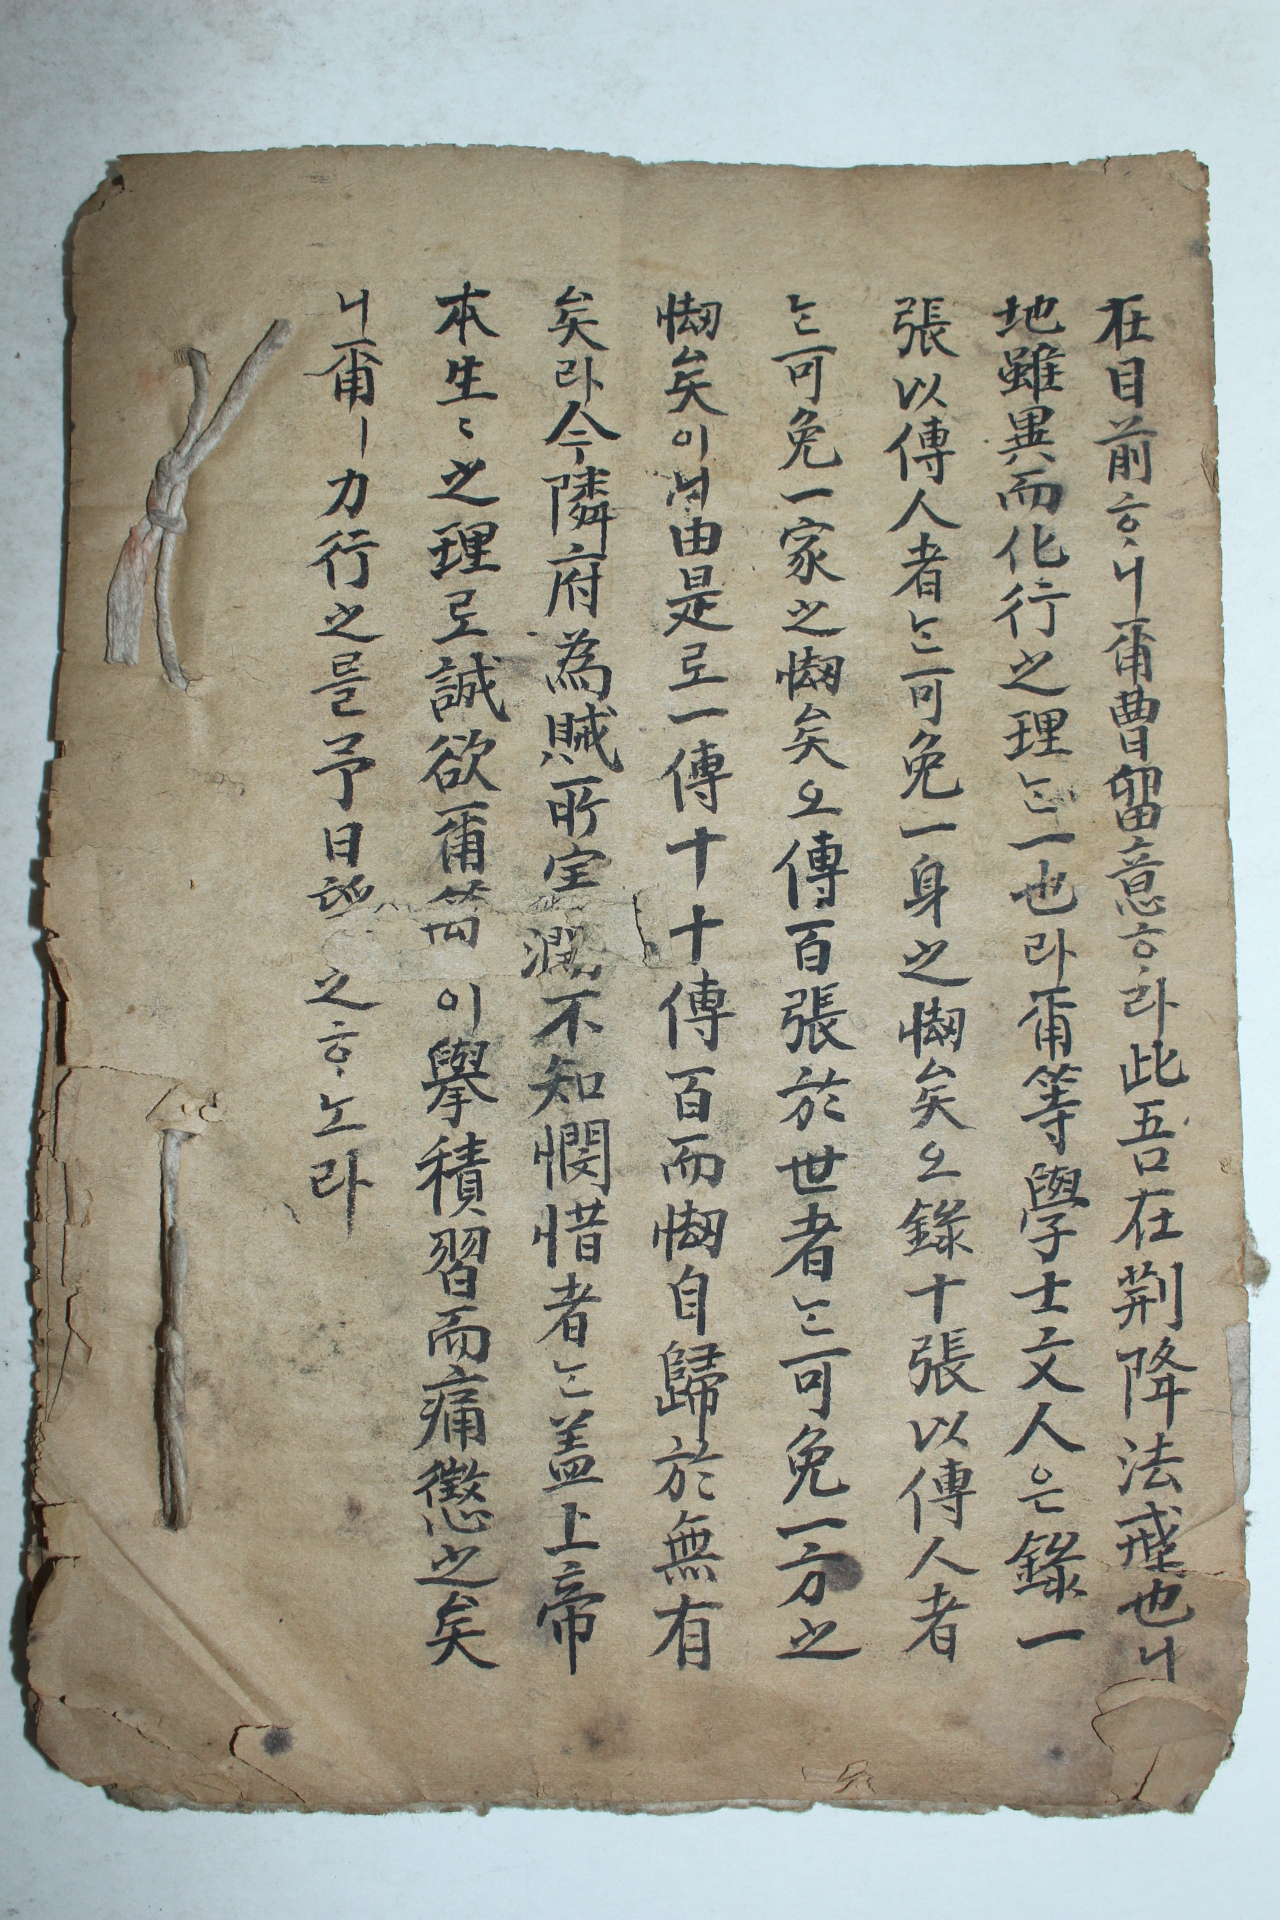 在目前ᄒᆞ니爾曹留意ᄒᆞ라此吾在荊降法戒也니
地雖異而化行之理ᄂᆞᆫ一也라爾等學士文人은錄一
張以傳人者ᄂᆞᆫ可免一身之㤼矣오錄十張以傳人者
ᄂᆞᆫ可免一家之㤼矣오傳百張於世者ᄂᆞᆫ可免一方之
㤼矣이니由是로一傳十十傳百而㤼自歸於無有
矣라今隣府為賊所不知憫惜者ᄂᆞᆫ盖上帝
本生〻之理로誠欲爾等이擧積習而痛懲之矣
니爾ㅣ力行之를予日之ᄒᆞ노라